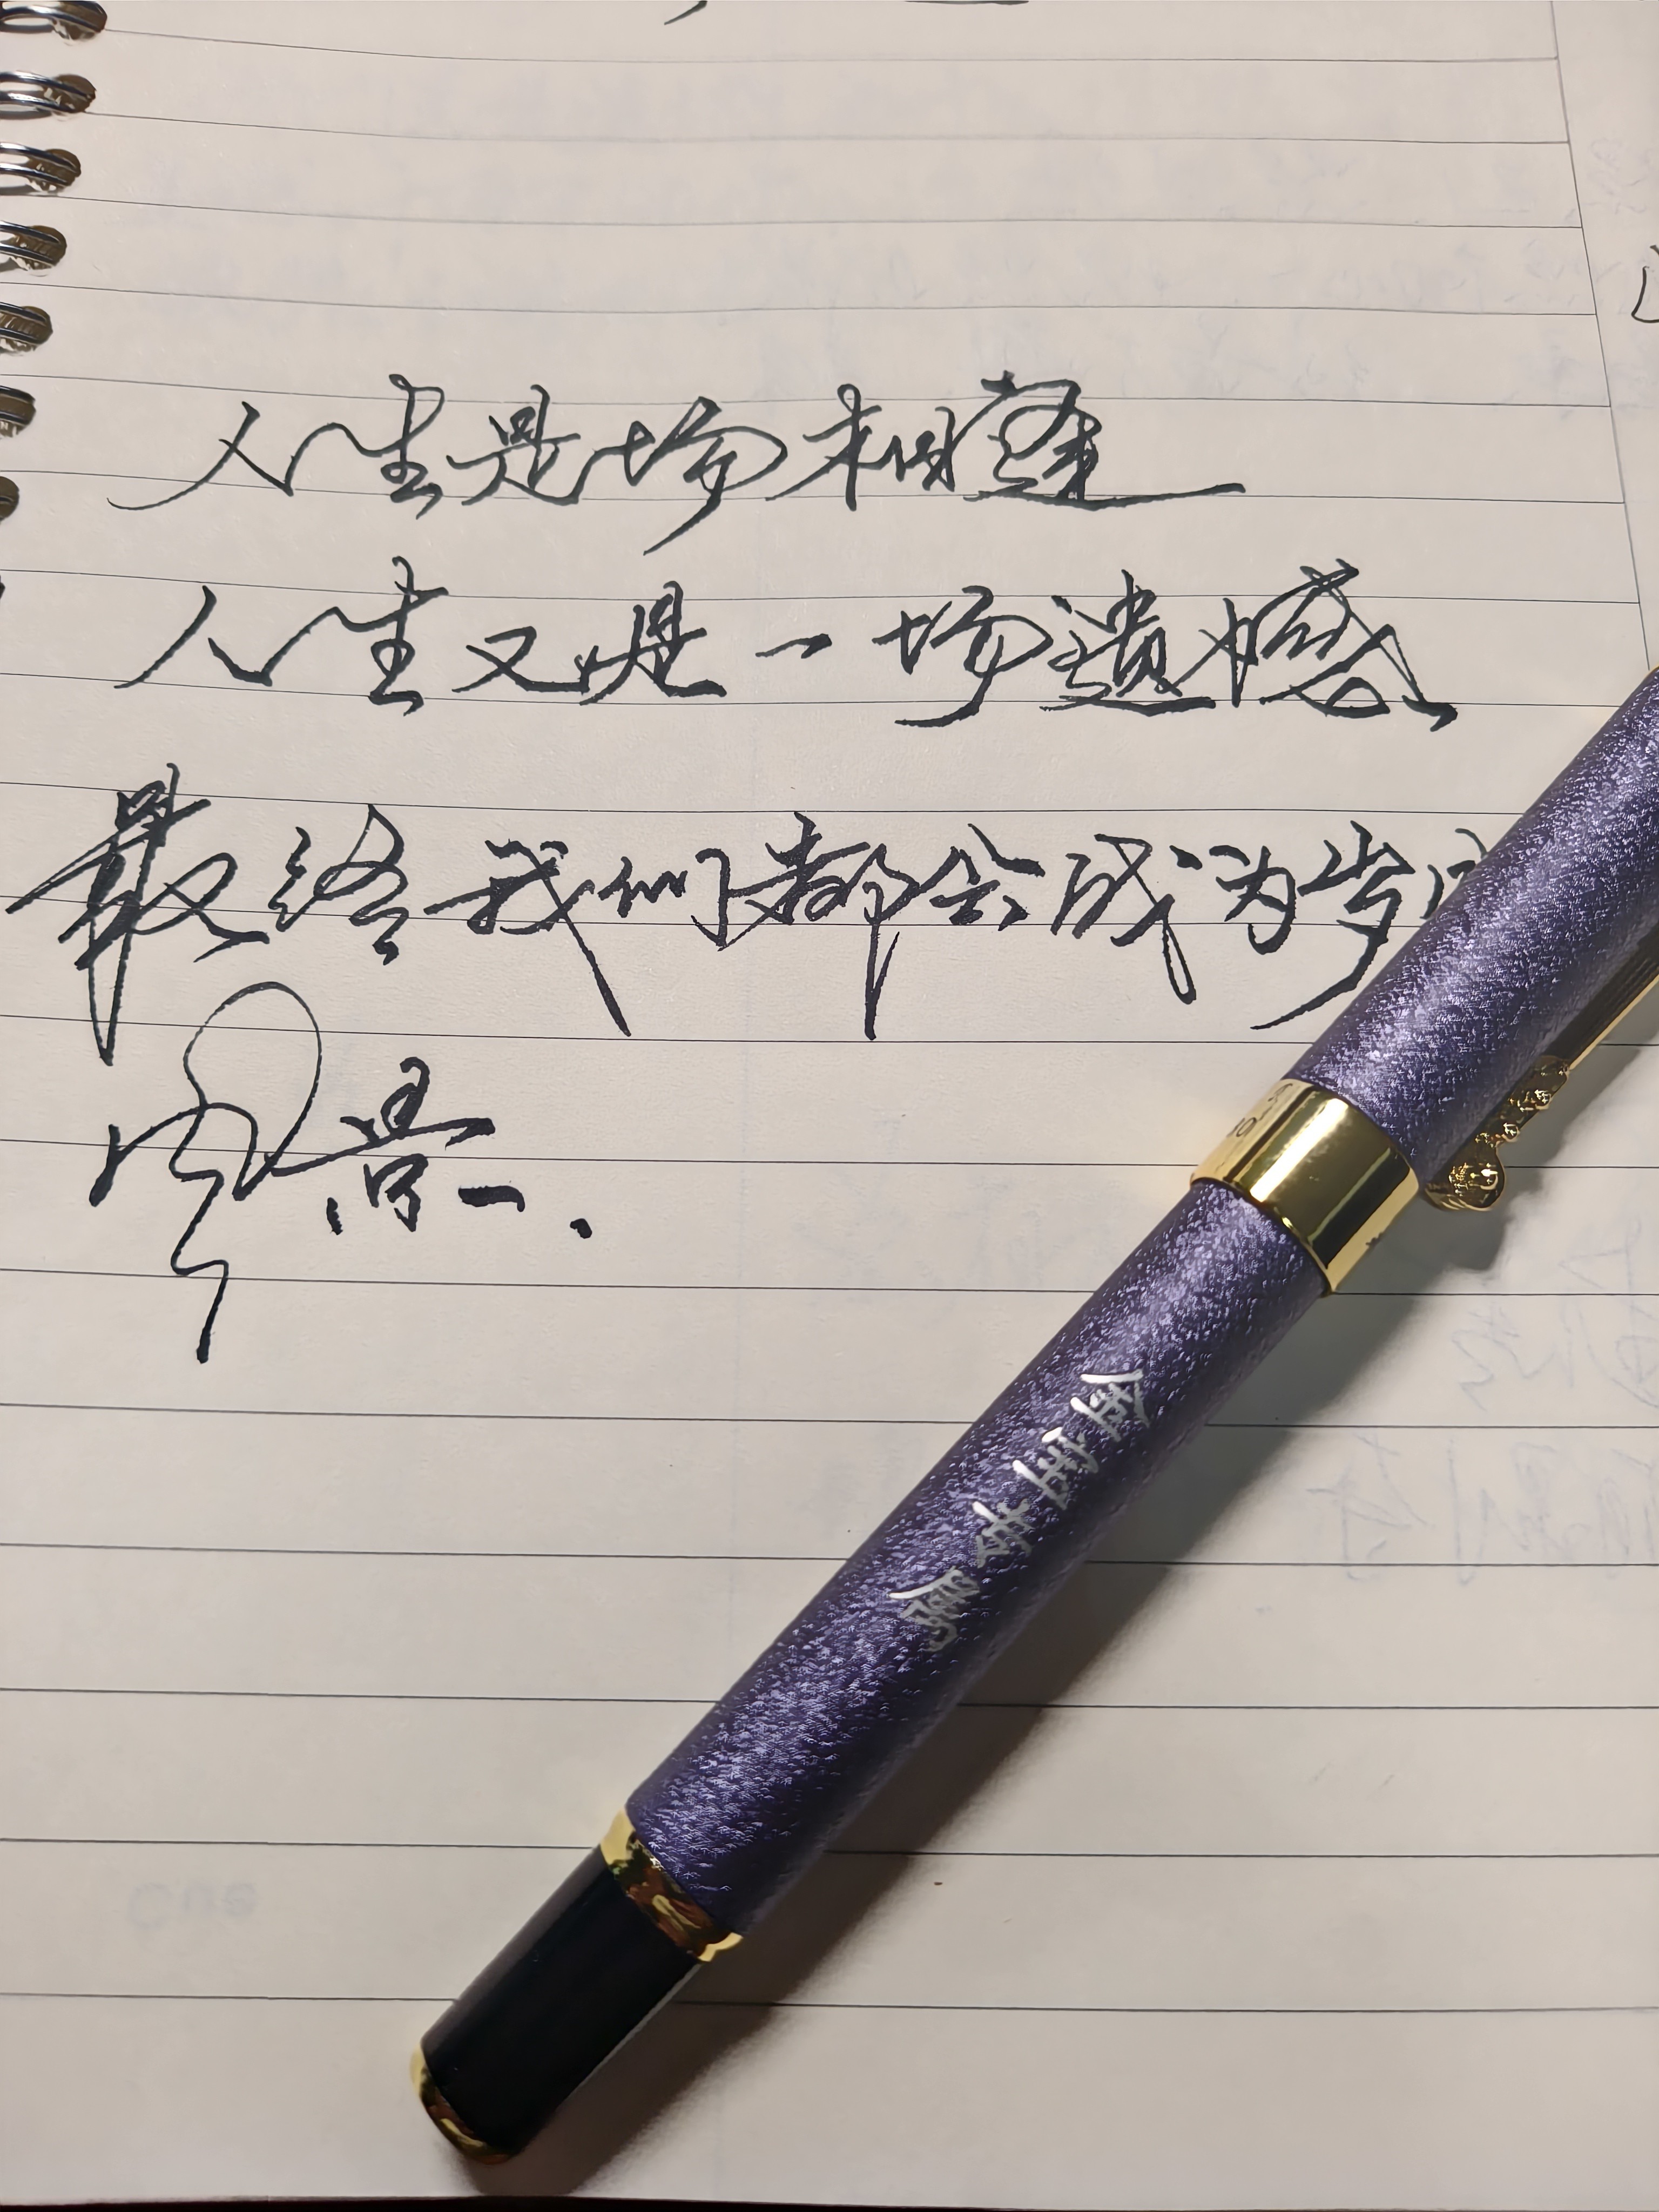 人生是场相逢
人生又是一场遗憾
最终我们都会成为岁
风景.
金玉名家
Cue